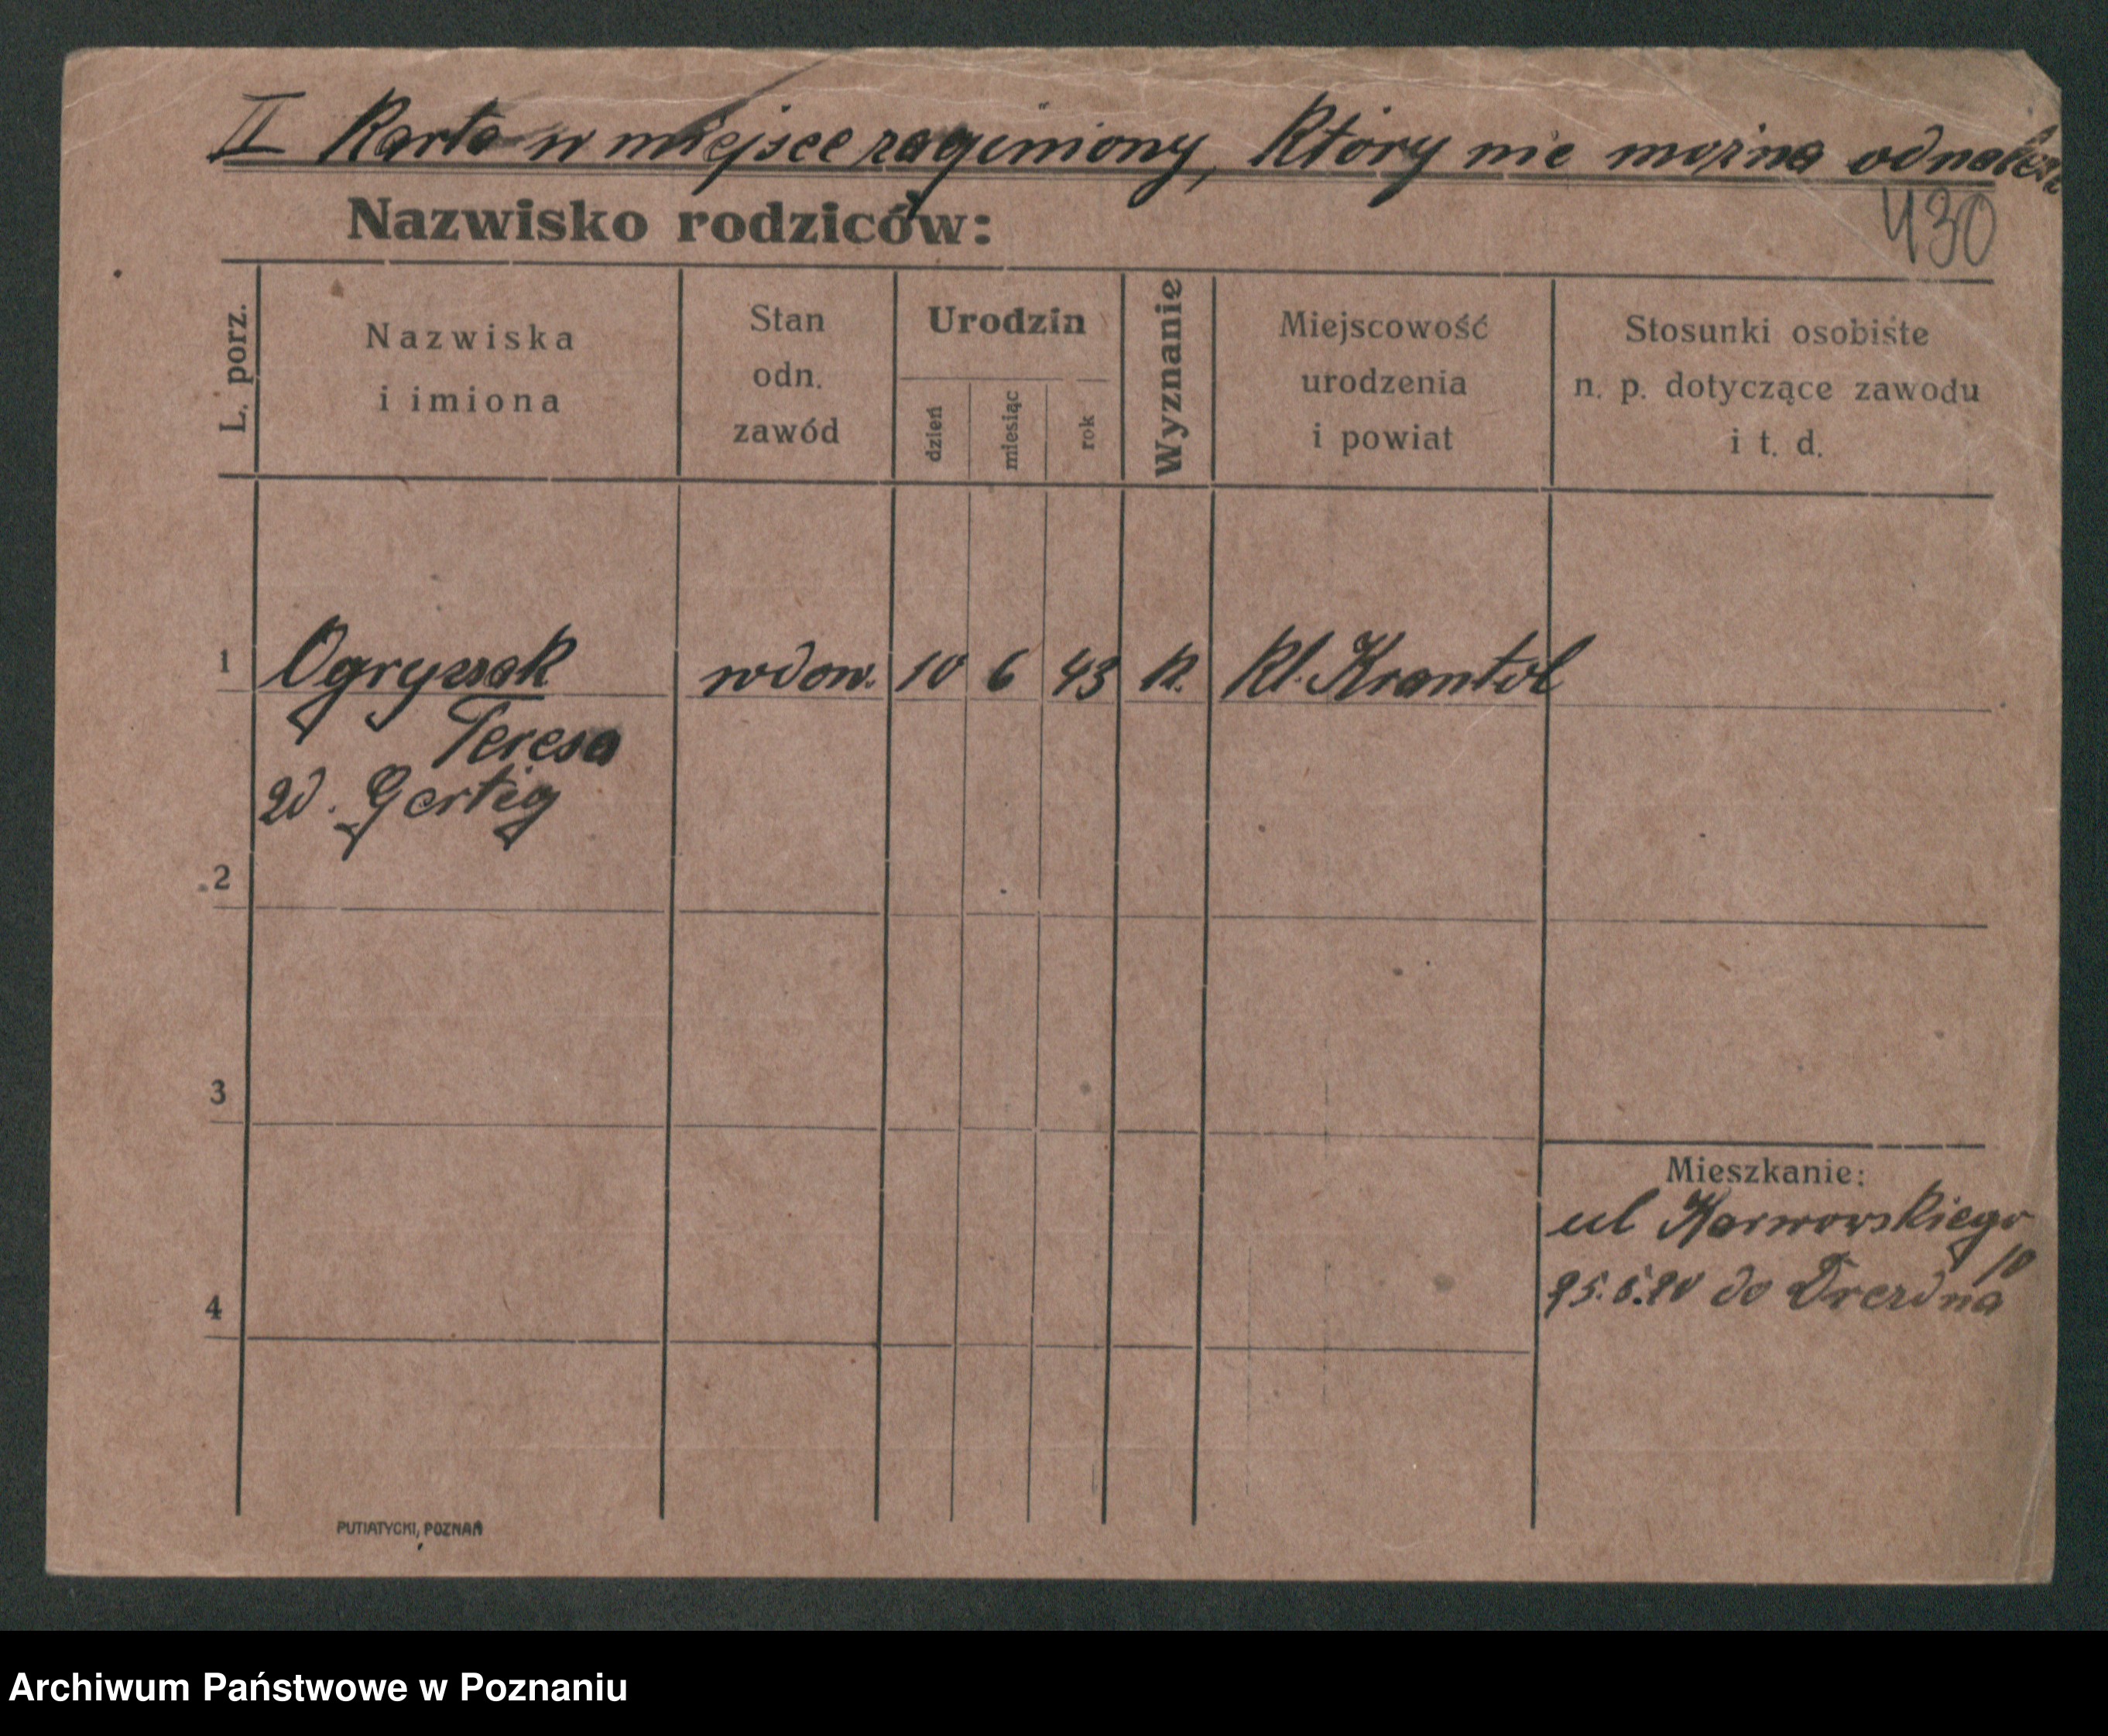 II Karta w miejsce zaginiony, Który nie można odnaleźć
430
Nazwisko rodziców:
L. porz.
Nazwiska
i imiona
Stan
odn.
zawód
Urodzin
dzień
miesiąc
rok
Wyznanie
Miejscowość
urodzenia
i powiat
Stosunki osobiste
n. p. dotyczące zawodu
i t. d.
1 Ogryzsak wdow. 10 6 43 K. Kl. Krantol
Teresa
zd. Gertig
2
3
4
Mieszkanie:
ul Karwowskiego
10
25.5.20 do Drezdna
PUTIATYCKI, POZNAŃ
Archiwum Państwowe w Poznaniu